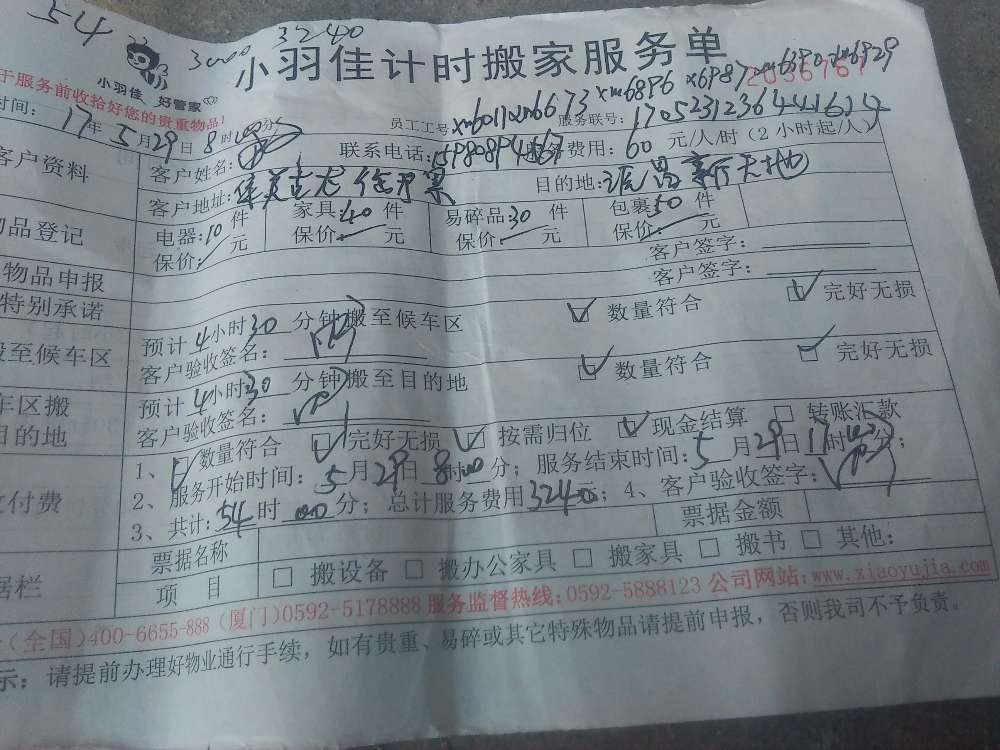 54
3000 3240
小羽佳计时搬家服务单
小羽佳 好管家
于服务前收拾好您的贵重物品!
员工工号 xm6011 xm6673 xm6896 xm6987 xm6929
服务联号: 1705231236441624
时间: 17年5月29日8时00分
客户资料
客户姓名:
联系电话:
费用: 60 元/人/时 (2小时起/人)
客户地址:
目的地: 新天地
品登记
电器: 10 件
保价: 元
家具: 40 件
保价: 元
易碎品 30 件
保价: 元
包裹: 50 件
保价: 元
物品申报
客户签字:
特别承诺
客户签字:
至候车区
预计 4小时30 分钟搬至候车区
数量符合
完好无损
客户验收签名:
车区搬
目的地
预计 4小时30 分钟搬至目的地
数量符合
完好无损
客户验收签名:
付费
1、 数量符合 完好无损 按需归位 现金结算 转账汇款
2、服务开始时间: 5月29日8时00分; 服务结束时间: 5月29日17时00分;
3、共计: 54时00分; 总计服务费用 3240元; 4、客户验收签字:
据栏
票据名称
票据金额
项 目
搬设备 搬办公家具 搬家具 搬书 其他:
(全国)400-6655-888 (厦门)0592-5178888 服务监督热线:0592-5888123 公司网站:www.xiaoyujia.com
示: 请提前办理好物业通行手续, 如有贵重、易碎或其它特殊物品请提前申报, 否则我司不予负责。